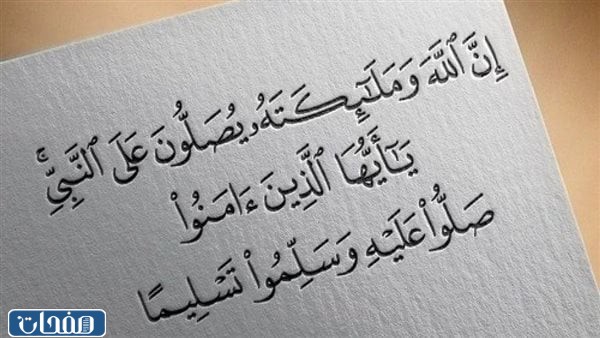 إِنَّ ٱللَّهَ وَمَلَٰٓئِكَتَهُۥ يُصَلُّونَ عَلَى ٱلنَّبِيِّۚ
يَٰٓأَيُّهَا ٱلَّذِينَ ءَامَنُوا۟
صَلُّوا۟ عَلَيْهِ وَسَلِّمُوا۟ تَسْلِيمًا
صفحات